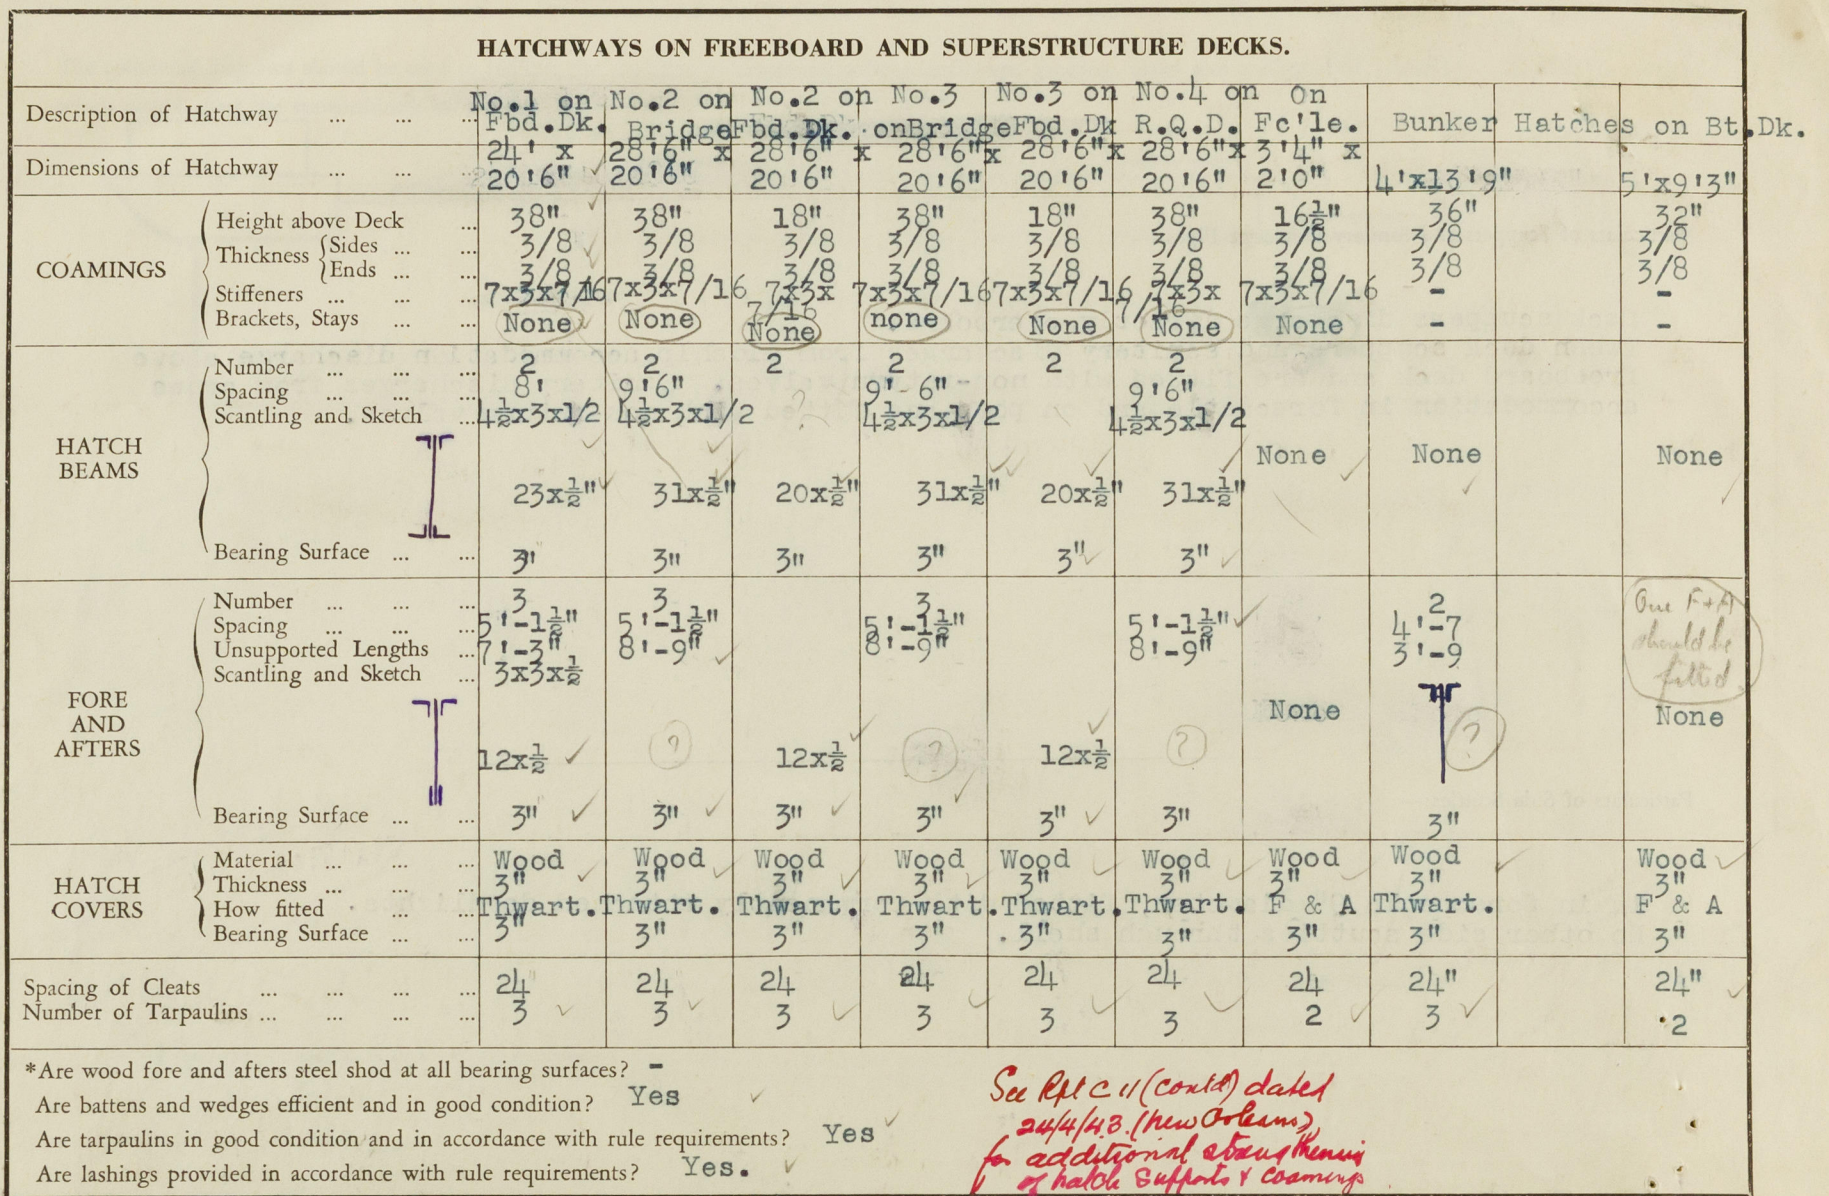 HATCHWAYS ON FREEBOARD AND SUPERSTRUCTURE DECKS.
Description of Hatchway ... ... ... No.1 on Fbd.Dk. No.2 on Bridge No.2 on Fbd.Dk. No.3 onBridge No.3 on Fbd.Dk No.4 on R.Q.D. On Fc'le. Bunker Hatches on Bt.Dk.
Dimensions of Hatchway ... ... ... 24' x 20'6" 28'6" x 20'6" 28'6" x 20'6" 28'6"x 20'6" 28'6"x 20'6" 28'6"x 20'6" 3'4" x 2'0" 4'x13'9" 5'x9'3"
COAMINGS
Height above Deck ... 38" 38" 18" 38" 18" 38" 16½" 36" 32"
Thickness { Sides ... ... 3/8 3/8 3/8 3/8 3/8 3/8 3/8 3/8 3/8
Ends ... ... 3/8 3/8 3/8 3/8 3/8 3/8 3/8 3/8 3/8
Stiffeners ... ... ... 7x3x7/16 7x3x7/16 7x3x 7/16 7x3x7/16 7x3x7/16 7x3x 7/16 7x3x7/16 - -
Brackets, Stays ... ... None None None none None None None - -
HATCH BEAMS
Number ... ... ... 2 2 2 2 2 2
Spacing ... ... ... 8' 9'6" 9'-6" 9'6"
Scantling and Sketch ... 4½x3x1/2 4½x3x1/2 ? 4½x3x1/2 4½x3x1/2
None None None
23x½" 31x½" 20x½" 31x½" 20x½" 31x½"
Bearing Surface ... ... 3" 3" 3" 3" 3" 3"
FORE AND AFTERS
Number ... ... ... 3 3 3 2 One F+A
Spacing ... ... ... 5'-1½" 5'-1½" 5'-1½" 5'-1½" 4'-7 should be
Unsupported Lengths ... 7'-3" 8'-9" 8'-9" 8'-9" 3'-9 fitted
Scantling and Sketch ... 3x3x½
None None
12x½ ? 12x½ ? 12x½ ? ?
Bearing Surface ... ... 3" 3" 3" 3" 3" 3" 3"
HATCH COVERS
Material ... ... ... Wood Wood Wood Wood Wood Wood Wood Wood Wood
Thickness ... ... ... 3" 3" 3" 3" 3" 3" 3" 3" 3"
How fitted ... ... Thwart. Thwart. Thwart. Thwart. Thwart. Thwart. F & A Thwart. F & A
Bearing Surface ... ... 3" 3" 3" 3" 3" 3" 3" 3" 3"
Spacing of Cleats ... ... ... ... 24 24 24 24 24 24 24 24" 24"
Number of Tarpaulins ... ... ... ... 3 3 3 3 3 3 2 3 2
*Are wood fore and afters steel shod at all bearing surfaces? -
Are battens and wedges efficient and in good condition? Yes
Are tarpaulins in good condition and in accordance with rule requirements? Yes
Are lashings provided in accordance with rule requirements? Yes.
See Rpt C 11 (contd) dated
24/4/43. (New Orleans)
for additional strengthening
of hatch supports & coamings